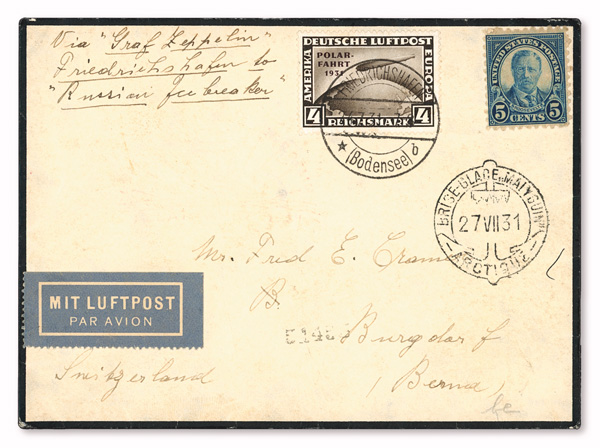 Via "Graf Zeppelin"
Friedrichshafen to
"Russian Icebreaker"
DEUTSCHE LUFTPOST
POLAR-
FAHRT
1931
AMERIKA
EUROPA
4 REICHSMARK 4
FRIEDRICHSHAFEN
(Bodensee) d
UNITED STATES POSTAGE
5 CENTS 5
BRISE-GLACE "MALYGUIN"
27 VII 31
ARCTIQUE
Mr. Fred E. Cramer
B.
MIT LUFTPOST
PAR AVION
Burgdorf
Switzerland
(Berne)